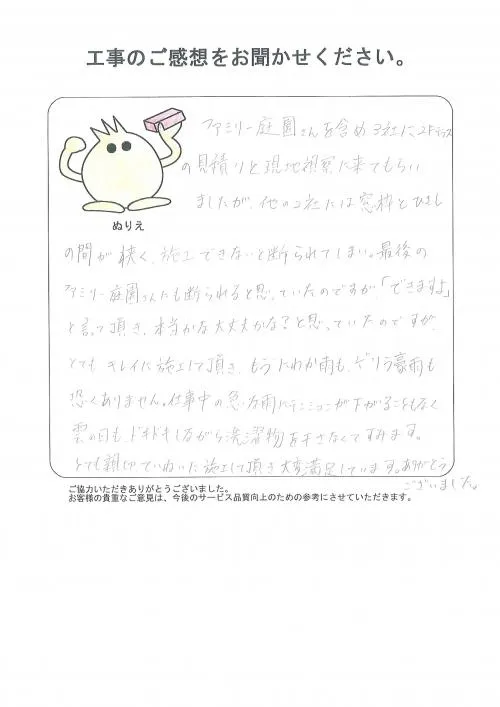 工事のご感想をお聞かせください。
ファミリー庭園さんを含め3社に2Fテラス
の見積りと現地視察に来てもらい
ましたが、他の2社には窓枠とひさし
ぬりえ
の間が狭く、施工できないと断られてしまい。最後の
ファミリー庭園さんにも断られると思っていたのですが「できますよ」
と言って頂き、本当かな大丈夫かな?と思っていたのですが、
とてもキレイに施工して頂き、もうにわか雨も、ゲリラ豪雨も
恐くありません。仕事中の急な雨にテンションが下がることもなく
雲の日も、ドキドキしながら洗濯物を干さなくてすみます。
とても親切ていねいに施工して頂き大変満足しています。ありがとう
ございました。
ご協力いただきありがとうございました。
お客様の貴重なご意見は、今後のサービス品質向上のための参考にさせていただきます。